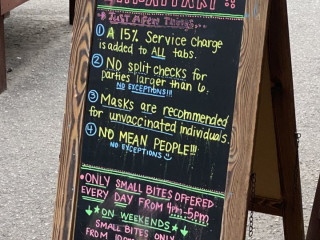 *Just A Few Things...
① A 15% Service charge
is added to ALL tabs.
② NO split checks for
parties larger than 6.
NO EXCEPTIONS!!!
③ Masks are recommended
for unvaccinated individuals.
④ NO MEAN PEOPLE!!!
NO EXCEPTIONS
•ONLY SMALL BITES OFFERED
EVERY DAY FROM 4pm-5pm
ON WEEKENDS
SMALL BITES ONLY
FROM